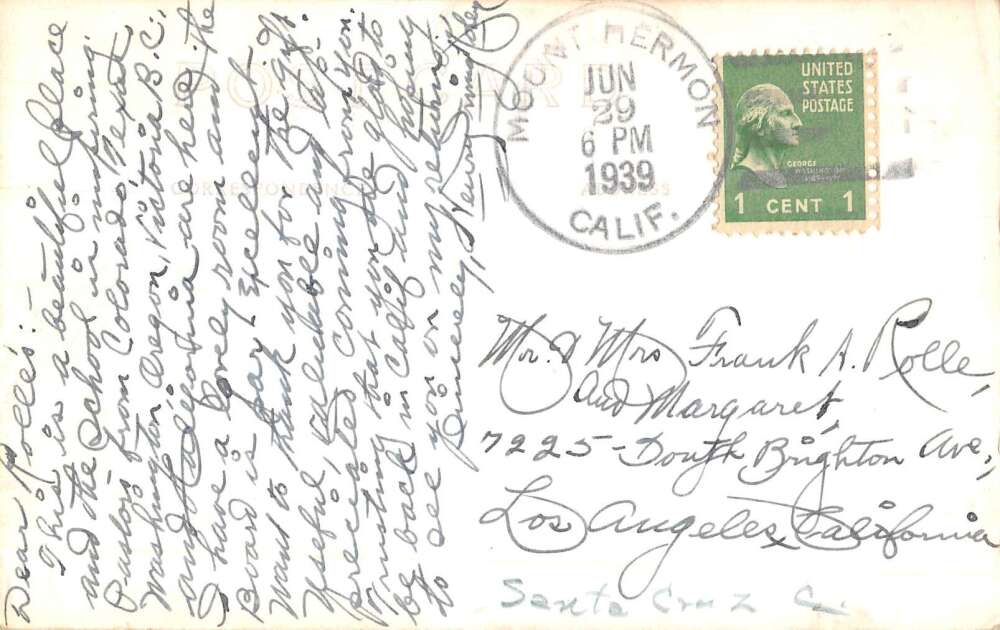 POST CARD
CORRESPONDENCE
ADDRESS
Dear Rolle's:
This is a beautiful place
and the School in inspiring.
Pastors from Colorado, Texas,
Washington, Oregon, Victoria B.C.
and California are here.
I have a lovely room and the
Board is par excellent.
Want to thank you for the gift.
Useful, valuable and
preciated coming from you.
Trusting that you are glad to
be back in Calif. and hoping
to see you on my return.
Sincerely,
MOUNT HERMON
JUN
29
6 PM
1939
CALIF.
UNITED
STATES
POSTAGE
GEORGE
WASHINGTON
1 CENT 1
Mr. & Mrs Frank A. Rolle,
and Margaret,
7225-South Brighton Ave,
Los Angeles, California
Santa Cruz Co.